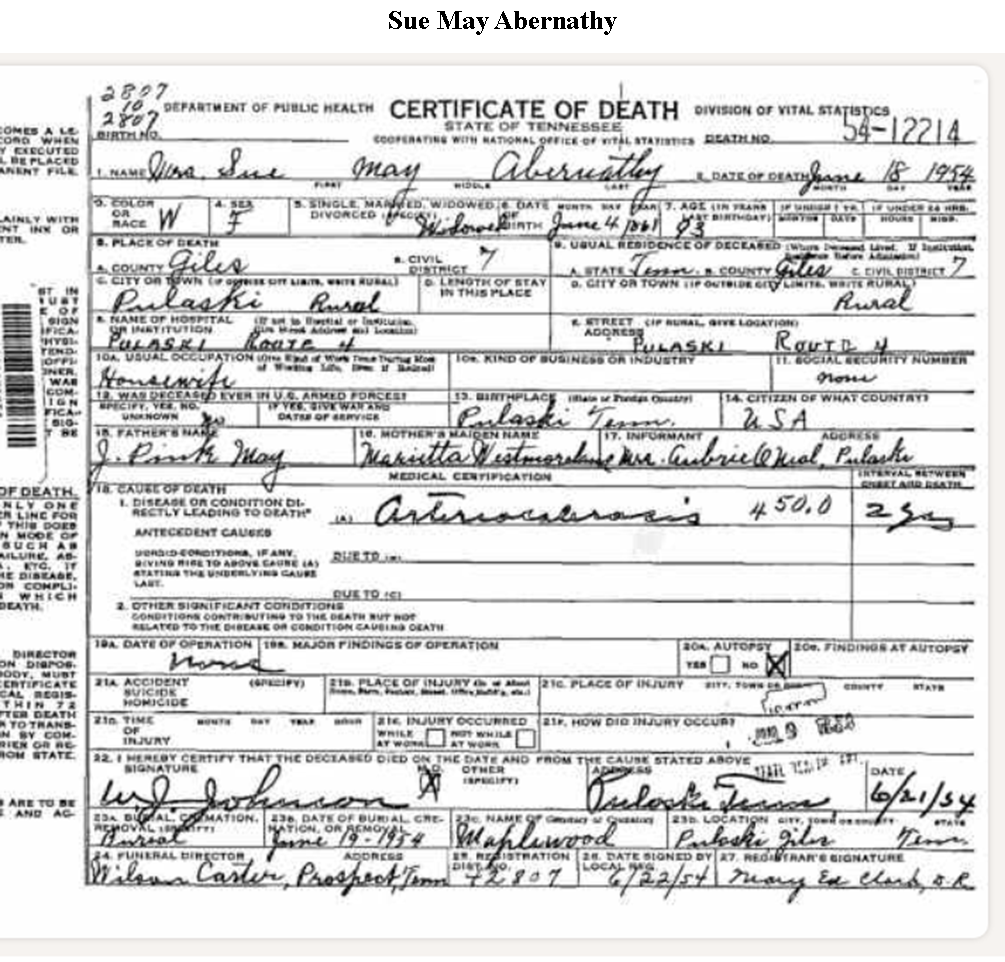 Sue May Abernathy
2807
10
2807
DEPARTMENT OF PUBLIC HEALTH CERTIFICATE OF DEATH DIVISION OF VITAL STATISTICS
STATE OF TENNESSEE
BIRTH NO. COOPERATING WITH NATIONAL OFFICE OF VITAL STATISTICS DEATH NO. 54-12214
1. NAME Mrs. Sue May Abernathy 2. DATE OF DEATH June 18 1954
FIRST MIDDLE LAST MONTH DAY YEAR
3. COLOR OR RACE W 4. SEX F 5. SINGLE, MARRIED, WIDOWED, DIVORCED (SPECIFY) Widowed 6. DATE OF BIRTH MONTH DAY YEAR June 4 1861 7. AGE (IN YEARS LAST BIRTHDAY) 93 IF UNDER 1 YR. MONTHS DAYS IF UNDER 24 HRS. HOURS MINS.
8. PLACE OF DEATH 9. USUAL RESIDENCE OF DECEASED (Where Deceased Lived. If Institution, Residence Before Admission)
A. COUNTY Giles B. CIVIL DISTRICT 7 A. STATE Tenn B. COUNTY Giles C. CIVIL DISTRICT 7
C. CITY OR TOWN (IF OUTSIDE CITY LIMITS, WRITE RURAL) Pulaski Rural D. LENGTH OF STAY IN THIS PLACE D. CITY OR TOWN (IF OUTSIDE CITY LIMITS, WRITE RURAL) Rural
E. NAME OF HOSPITAL OR INSTITUTION (If not in Hospital or Institution, Give Street Address and Location) PULASKI ROUTE 4 E. STREET ADDRESS (IF RURAL, GIVE LOCATION) PULASKI ROUTE 4
10A. USUAL OCCUPATION (Give Kind of Work Done During Most of Working Life, Even if Retired) Housewife 10B. KIND OF BUSINESS OR INDUSTRY 11. SOCIAL SECURITY NUMBER none
12. WAS DECEASED EVER IN U.S. ARMED FORCES? SPECIFY, YES, NO, UNKNOWN No IF YES, GIVE WAR AND DATES OF SERVICE 13. BIRTHPLACE (State or Foreign Country) Pulaski Tenn. 14. CITIZEN OF WHAT COUNTRY? USA
15. FATHER'S NAME J. Pink May 16. MOTHER'S MAIDEN NAME Marietta Westmoreland 17. INFORMANT ADDRESS Mrs. Aubrie O Neal, Pulaski
MEDICAL CERTIFICATION INTERVAL BETWEEN ONSET AND DEATH
18. CAUSE OF DEATH
1. DISEASE OR CONDITION DIRECTLY LEADING TO DEATH* (A) Arteriosclerosis 450.0 2 yrs
ANTECEDENT CAUSES
MORBID CONDITIONS, IF ANY, GIVING RISE TO ABOVE CAUSE (A) STATING THE UNDERLYING CAUSE LAST. DUE TO (B)
DUE TO (C)
2. OTHER SIGNIFICANT CONDITIONS
CONDITIONS CONTRIBUTING TO THE DEATH BUT NOT
RELATED TO THE DISEASE OR CONDITION CAUSING DEATH
19A. DATE OF OPERATION none 19B. MAJOR FINDINGS OF OPERATION 20A. AUTOPSY YES NO X 20B. FINDINGS AT AUTOPSY
21A. ACCIDENT SUICIDE HOMICIDE (SPECIFY) 21B. PLACE OF INJURY 21C. PLACE OF INJURY CITY, TOWN COUNTY STATE
21D. TIME OF INJURY MONTH DAY YEAR HOUR 21E. INJURY OCCURRED WHILE AT WORK NOT WHILE AT WORK 21F. HOW DID INJURY OCCUR?
22. I HEREBY CERTIFY THAT THE DECEASED DIED ON THE DATE AND FROM THE CAUSE STATED ABOVE
SIGNATURE W.J. Johnson M.D. X OTHER (SPECIFY) ADDRESS Pulaski Tenn DATE 6/21/54
23A. BURIAL, CREMATION, REMOVAL (SPECIFY) Burial 23B. DATE OF BURIAL, CREMATION, OR REMOVAL June 19-1954 23C. NAME OF (Cemetery or Crematory) Maplewood 23D. LOCATION CITY, TOWN OR COUNTY STATE Pulaski Giles Tenn
24. FUNERAL DIRECTOR ADDRESS Wilson Carter, Prospect, Tenn 25. REGISTRATION DIST. NO. 72807 26. DATE SIGNED BY LOCAL REG. 6/22/54 27. REGISTRAR'S SIGNATURE Mary Ed Clark, D.R.